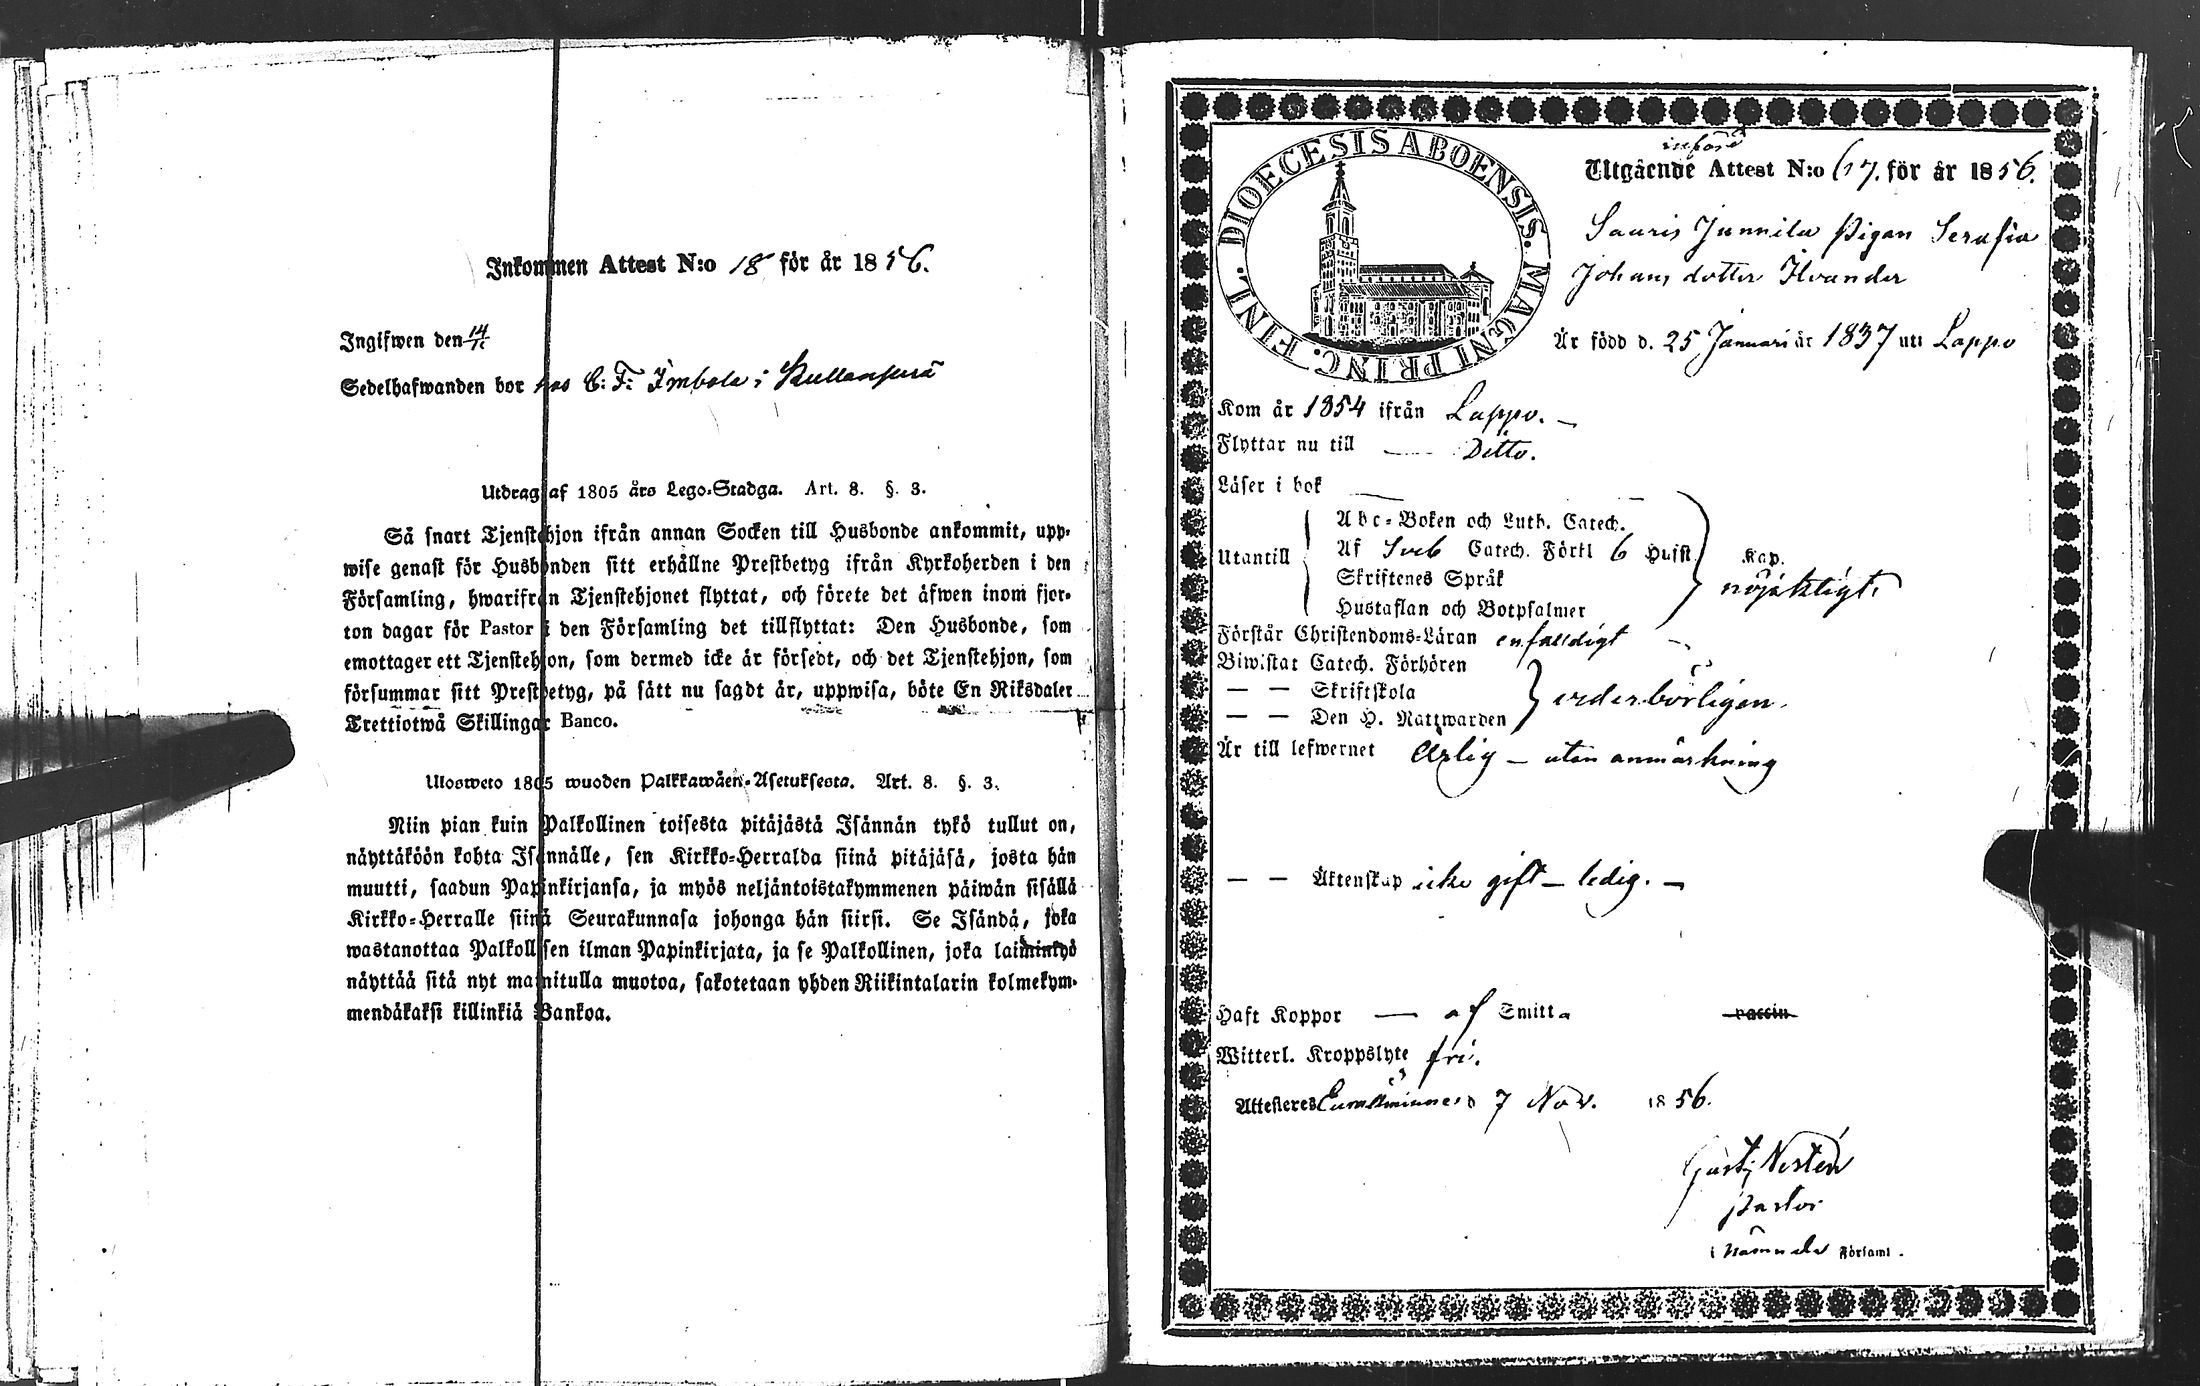 Inkommen Attest N:o 18 för år 1856.
Ingifwen den 14/11
Sedelhafwanden bor hos C: F: Imbola i Kullanperä
Utdrag af 1805 års Lego-Stadga. Art. 8. §. 3.
Så snart Tjenstehjon ifrån annan Socken till Husbonde ankommit, upp-
wise genast för Husbonden sitt erhållne Prestbetyg ifrån Kyrkoherden i den
Församling, hwarifrån Tjenstehjonet flyttat, och förete det äfwen inom fjor-
ton dagar för Pastor i den Församling det tillflyttat: Den Husbonde, som
emottager ett Tjenstehjon, som dermed icke är försedt, och det Tjenstehjon, som
försummar sitt Prestbetyg, på sätt nu sagdt är, uppwisa, böte En Riksdaler
Trettiotwå Skillingar Banco.
Ulosweto 1805 wuoden Palkkawäen-Asetuksesta. Art. 8. §. 3.
Niin pian kuin Palkollinen toisesta pitäjästä Isännän tykö tullut on,
näyttäköön kohta Isännälle, sen Kirkko-Herralda siinä pitäjäsä, josta hän
muutti, saadun Papinkirjansa, ja myös neljäntoistakymmenen päiwän sisällä
Kirkko-Herralle siinä Seurakunnasa johonga hän siirsi. Se Isändä, joka
wastanottaa Palkollisen ilman Papinkirjata, ja se Palkollinen, joka laiminlyö
näyttää sitä nyt mainitulla muotoa, sakotetaan yhden Riikintalarin kolmekym-
mendäkaksi killinkiä Bankoa.
DIOECESIS ABOENSIS. MAGNI PRINC. FINL.
införd
Utgående Attest N:o 67. för år 1856.
Sauris Junnila Pigan Serafia
Johans dotter Ilvander
Är född d. 25 Januari år 1837 uti Lappo
Kom år 1854 ifrån Lappo.
Flyttar nu till Ditto.
Läser i bok
Abc-Boken och Luth. Catech.
Utantill Af Sveb Catech. Förkl 6 Hufst. Kap.
Skriftenes Språk nöjaktigt.
Hustaflan och Botpsalmer
Förstår Christendoms-Läran enfaldigt
Biwistat Catech. Förhören
— — Skriftskola
— — Den H. Nattwarden vederbörligen.
Är till lefwernet Ärlig — utan anmärkning
— — Äktenskap icke gift — ledig. —
Haft Koppor — af Smitta vaccin
Witterl. Kroppslyte fri.
Attesteres Euraåminne d 7 Nov. 1856.
Gust: Nestén
Pastor
i nämnde Församl.